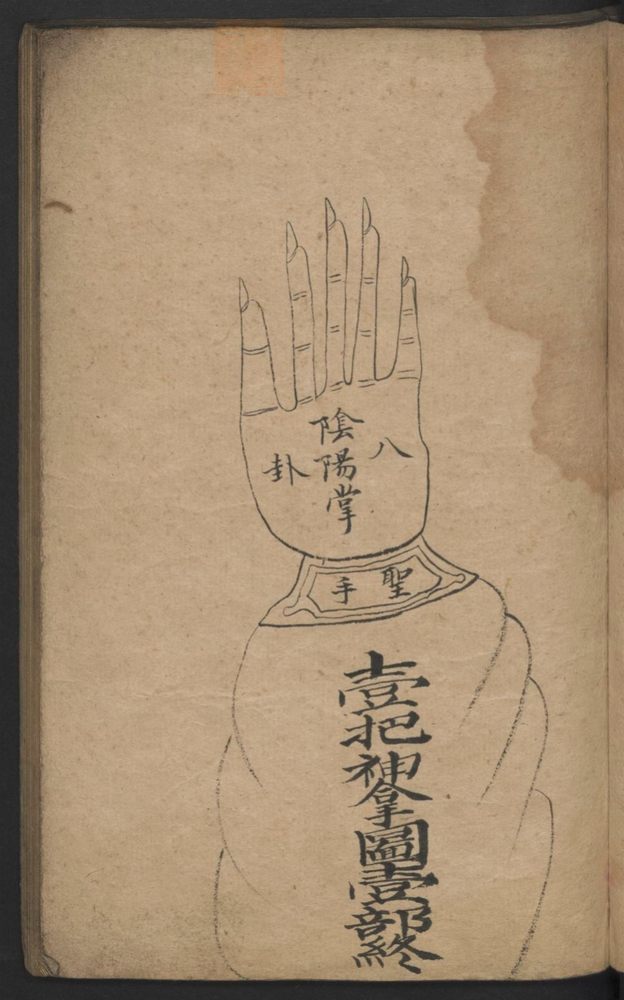 陰陽掌
八卦
聖手
壹把神拿圖壹部終